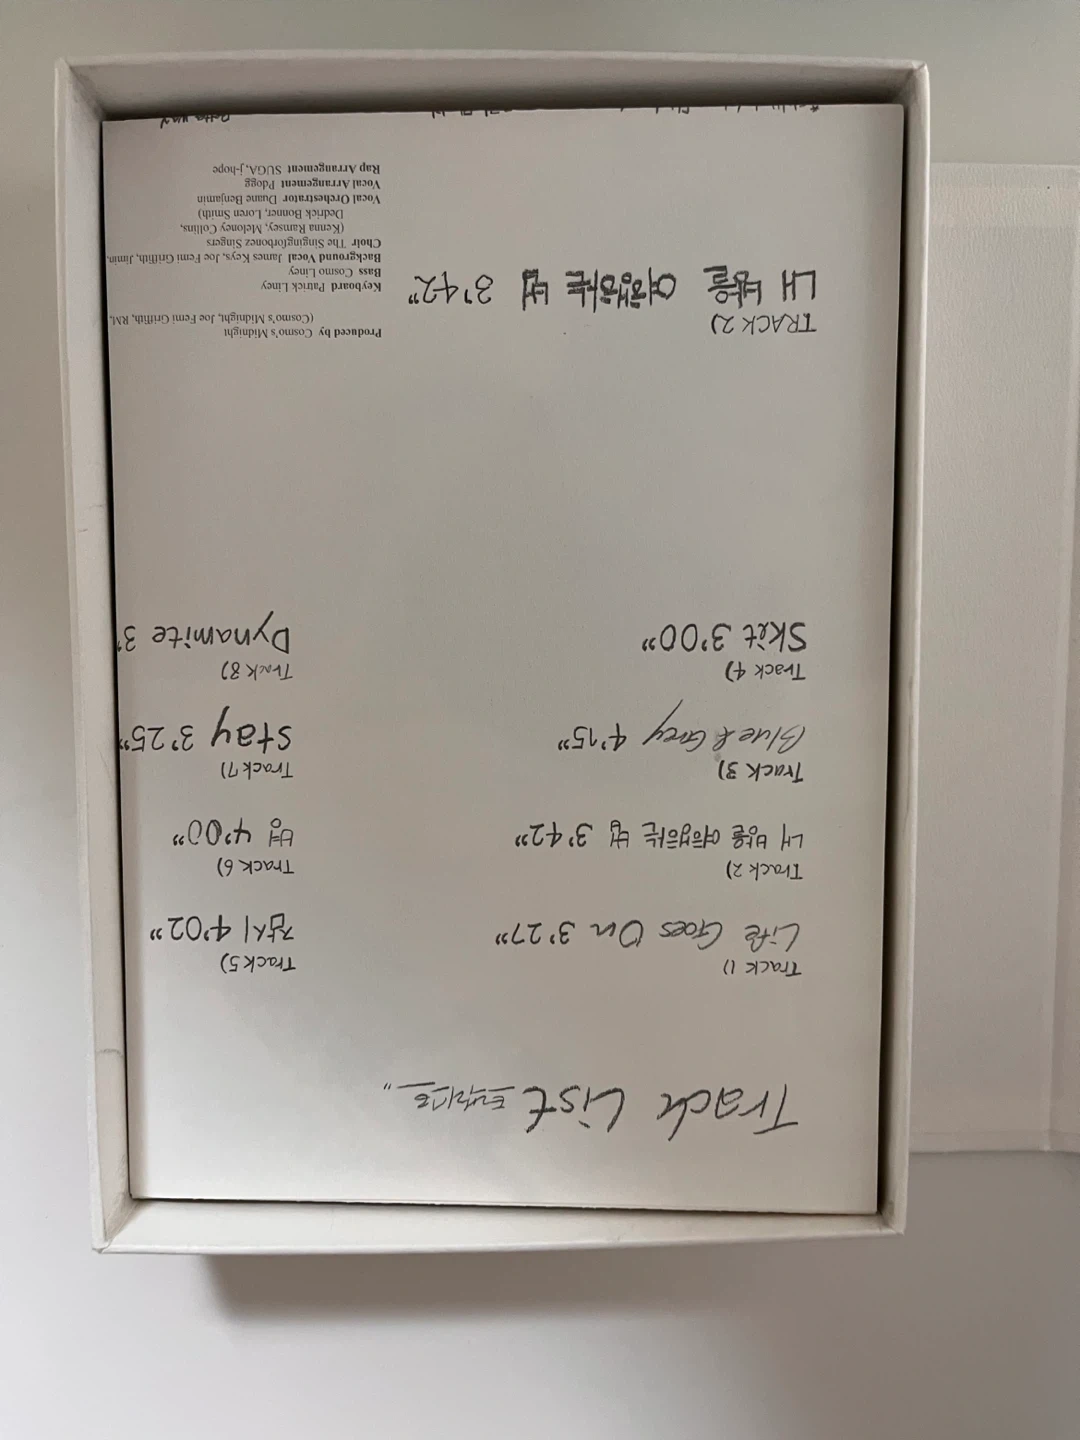 Track List 트랙리스트"
Track 1)
Life Goes On 3'27"
Track 2)
내 방을 여행하는 법 3'42"
Track 3)
Blue & Grey 4'15"
Track 4)
Skit 3'00"
Track 5)
잠시 4'02"
Track 6)
병 4'00"
Track 7)
Stay 3'25"
Track 8)
Dynamite 3'
TRACK 2)
내 방을 여행하는 법 3'42"
Produced by Cosmo's Midnight
(Cosmo's Midnight, Joe Femi Griffith, RM,
Keyboard Patrick Liney
Bass Cosmo Liney
Background Vocal James Keys, Joe Femi Griffith, Jimin,
Choir The Singingforbonez Singers
(Kenna Ramsey, Meloney Collins,
Dedrick Bonner, Loren Smith)
Vocal Orchestrator Duane Benjamin
Vocal Arrangement Pdogg
Rap Arrangement SUGA, j-hope